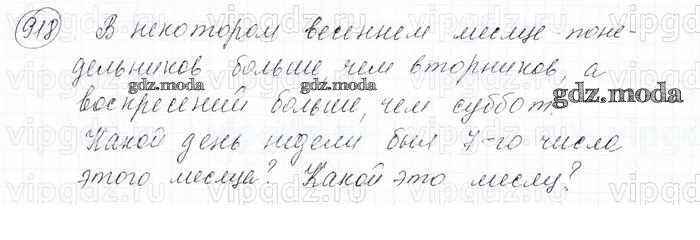 918 В некотором весеннем месяце поне-
дельников больше, чем вторников, а
gdz.moda gdz.moda
воскресений больше, чем суббот.
gdz.moda
Какой день недели был 7-го числа
этого месяца? Какой это месяц?